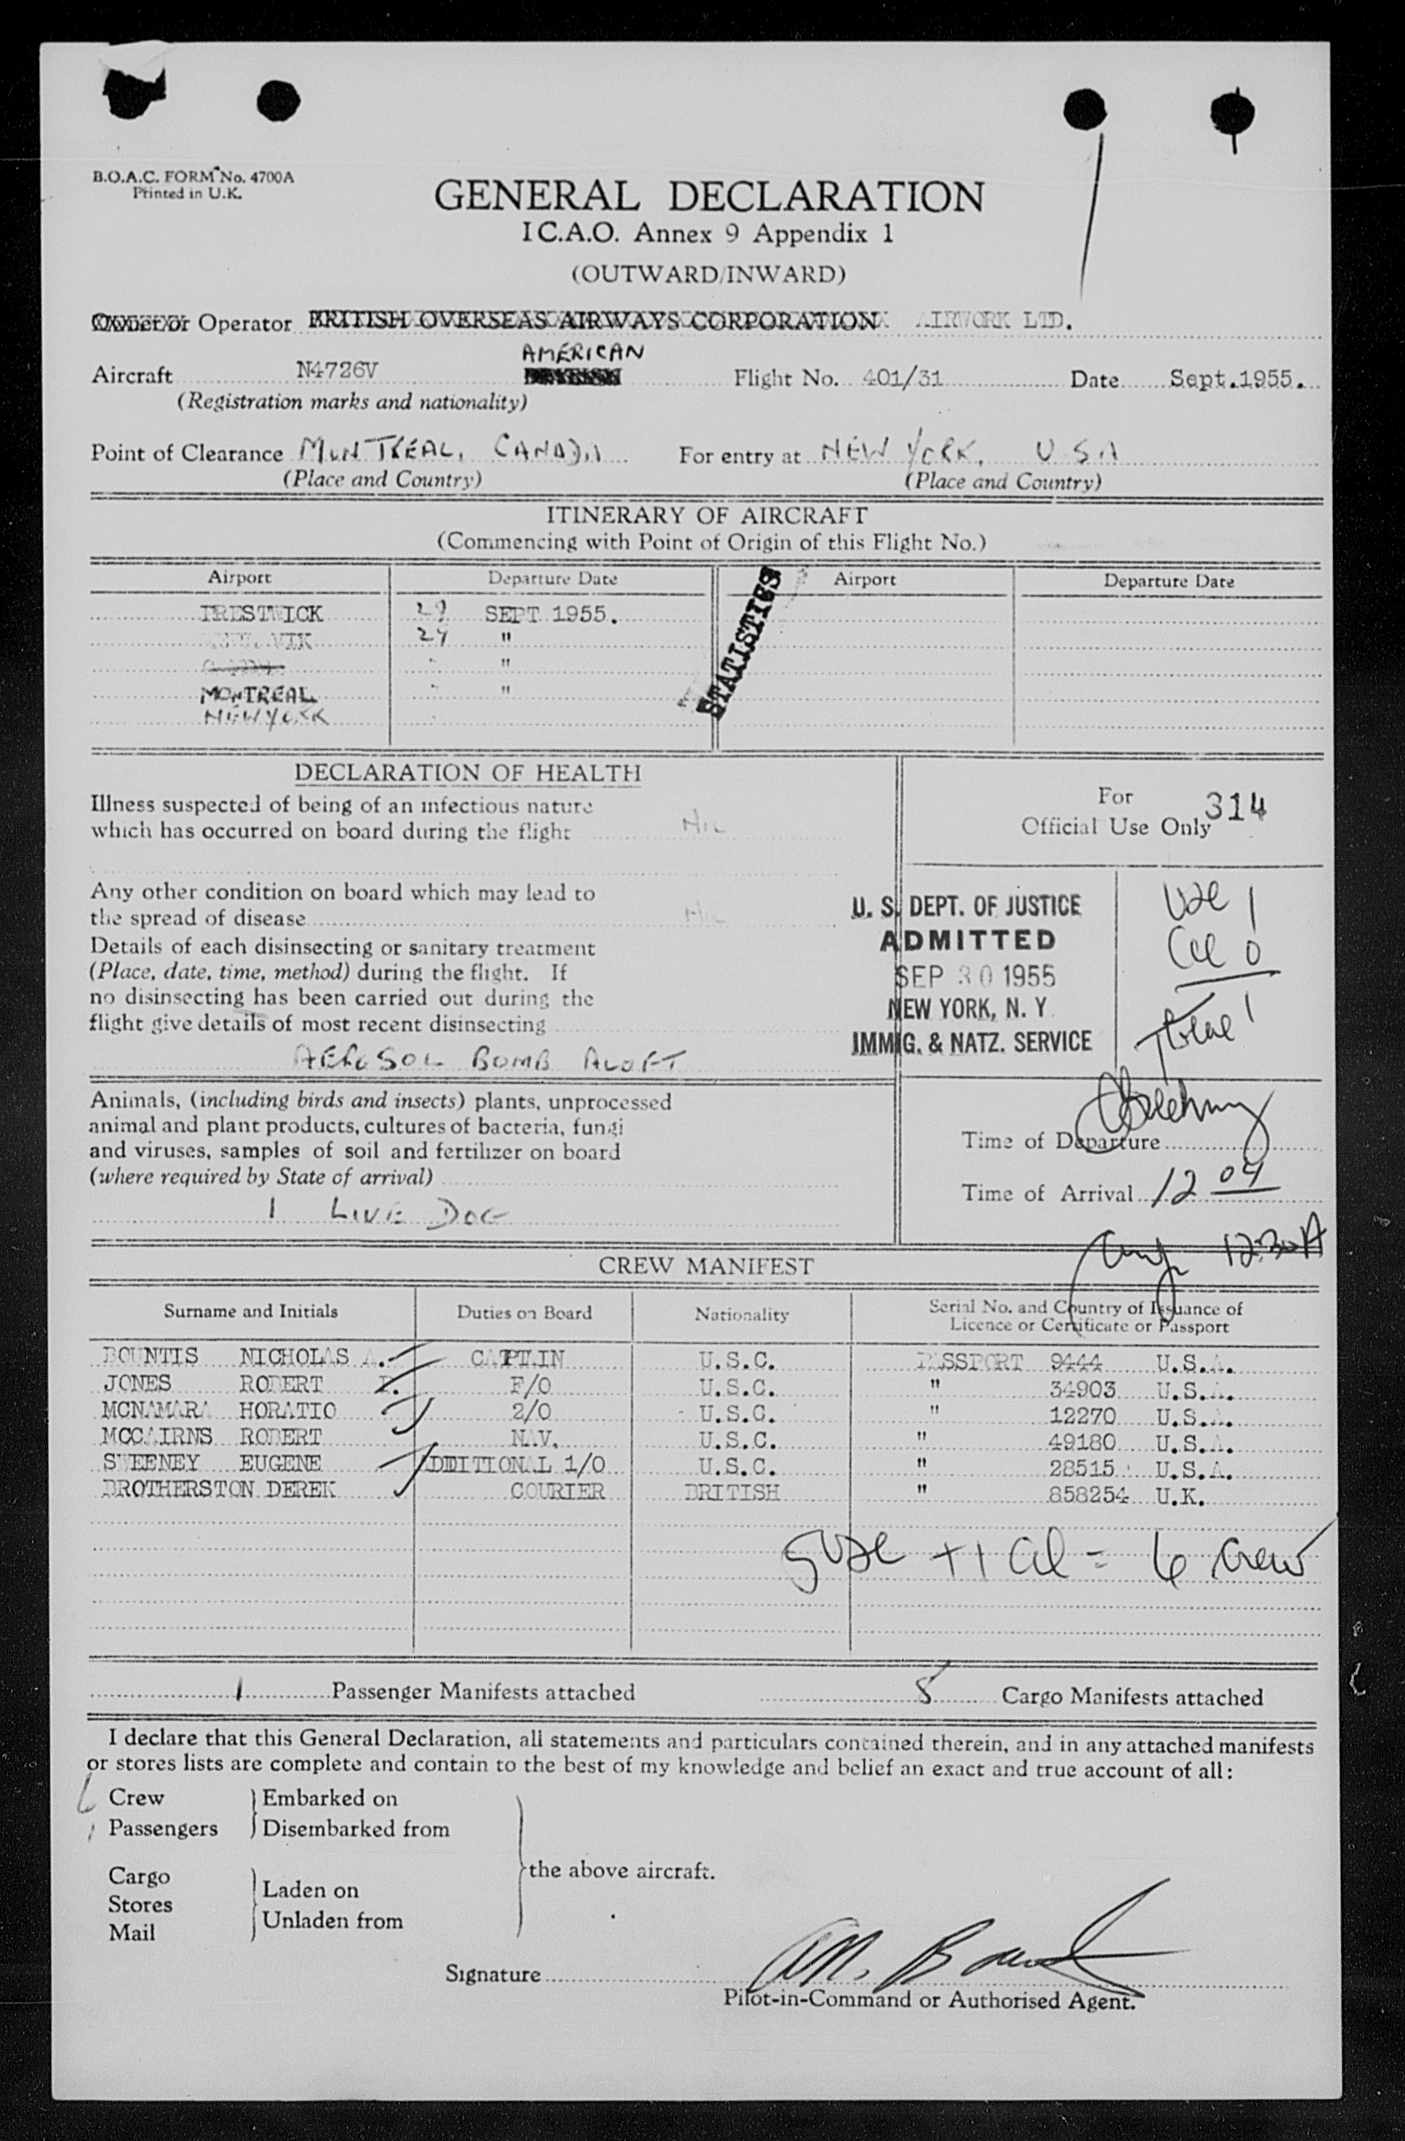 B.O.A.C. FORM No. 4700A
Printed in U.K.
GENERAL DECLARATION
I C.A.O. Annex 9 Appendix 1
(OUTWARD/INWARD)
Owner or Operator BRITISH OVERSEAS AIRWAYS CORPORATION AIRWORK LTD.
AMERICAN
Aircraft N4726V Flight No. 401/31 Date Sept.1955.
(Registration marks and nationality)
Point of Clearance MONTREAL, CANADA For entry at NEW YORK, USA
(Place and Country) (Place and Country)
ITINERARY OF AIRCRAFT
(Commencing with Point of Origin of this Flight No.)
Airport Departure Date Airport Departure Date
PRESTWICK 29 SEPT 1955.
29 "
"
MONTREAL "
NEW YORK
STATISTICS
DECLARATION OF HEALTH
Illness suspected of being of an infectious nature
which has occurred on board during the flight NIL
Any other condition on board which may lead to
the spread of disease NIL
Details of each disinsecting or sanitary treatment
(Place, date, time, method) during the flight. If
no disinsecting has been carried out during the
flight give details of most recent disinsecting
AEROSOL BOMB ALOFT
Animals, (including birds and insects) plants, unprocessed
animal and plant products, cultures of bacteria, fungi
and viruses, samples of soil and fertilizer on board
(where required by State of arrival)
1 LIVE DOG
For
Official Use Only 314
U. S. DEPT. OF JUSTICE
ADMITTED
SEP 30 1955
NEW YORK, N. Y
IMMIG. & NATZ. SERVICE
Time of Departure
Time of Arrival 12 04
12:30A
CREW MANIFEST
Surname and Initials Duties on Board Nationality Serial No. and Country of Issuance of
Licence or Certificate or Passport
BOUNTIS NICHOLAS A. CAPTAIN U.S.C. PASSPORT 9444 U.S.A.
JONES ROBERT F/O U.S.C. " 34903 U.S.A.
MCNAMARA HORATIO 2/O U.S.C. " 12270 U.S.A.
MCCAIRNS ROBERT NAV. U.S.C. " 49180 U.S.A.
SWEENEY EUGENE ADDITIONAL 1/O U.S.C. " 28515 U.S.A.
BROTHERSTON DEREK COURIER BRITISH " 858254 U.K.
= 6 crew
1 Passenger Manifests attached 5 Cargo Manifests attached
I declare that this General Declaration, all statements and particulars contained therein, and in any attached manifests
or stores lists are complete and contain to the best of my knowledge and belief an exact and true account of all:
6 Crew Embarked on
1 Passengers Disembarked from
the above aircraft.
Cargo
Stores Laden on
Mail Unladen from
Signature
Pilot-in-Command or Authorised Agent.